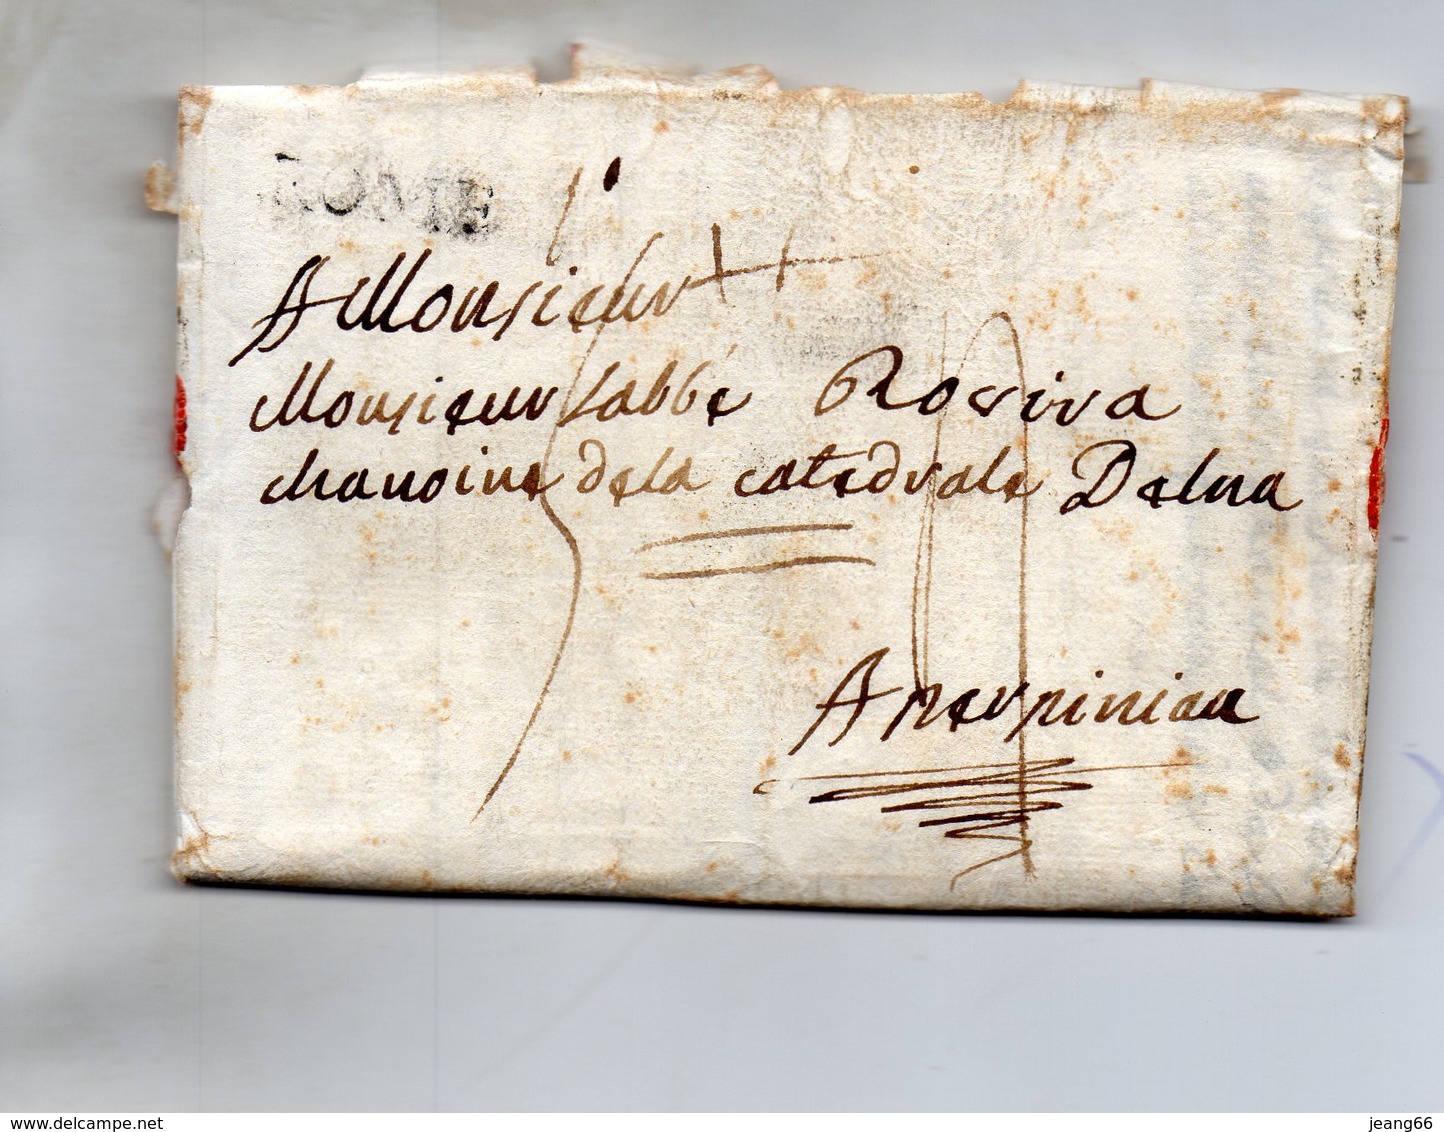 ROME
A Monsieur
Monsieur labbé Rovira
chanoine dela catedrale Delna
A perpinian
delcampe.net
jeang66